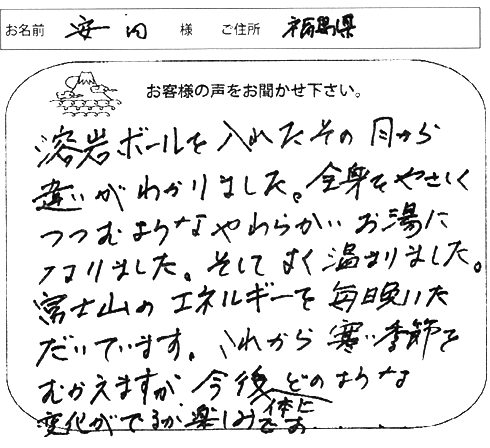 お名前 安田 様 ご住所 福島県
お客様の声をお聞かせ下さい。
溶岩ボールを入れたその日から
違いがわかりました。全身をやさしく
つつむようなやわらかいお湯に
なりました。そしてよく温まりました。
富士山のエネルギーを毎日いた
だいています。これから寒い季節を
むかえますが今後どのような
変化がでるか楽しみです
体に